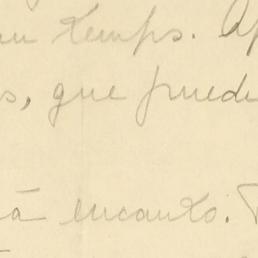 Kemps. Ap
s, que puede
á encanto.